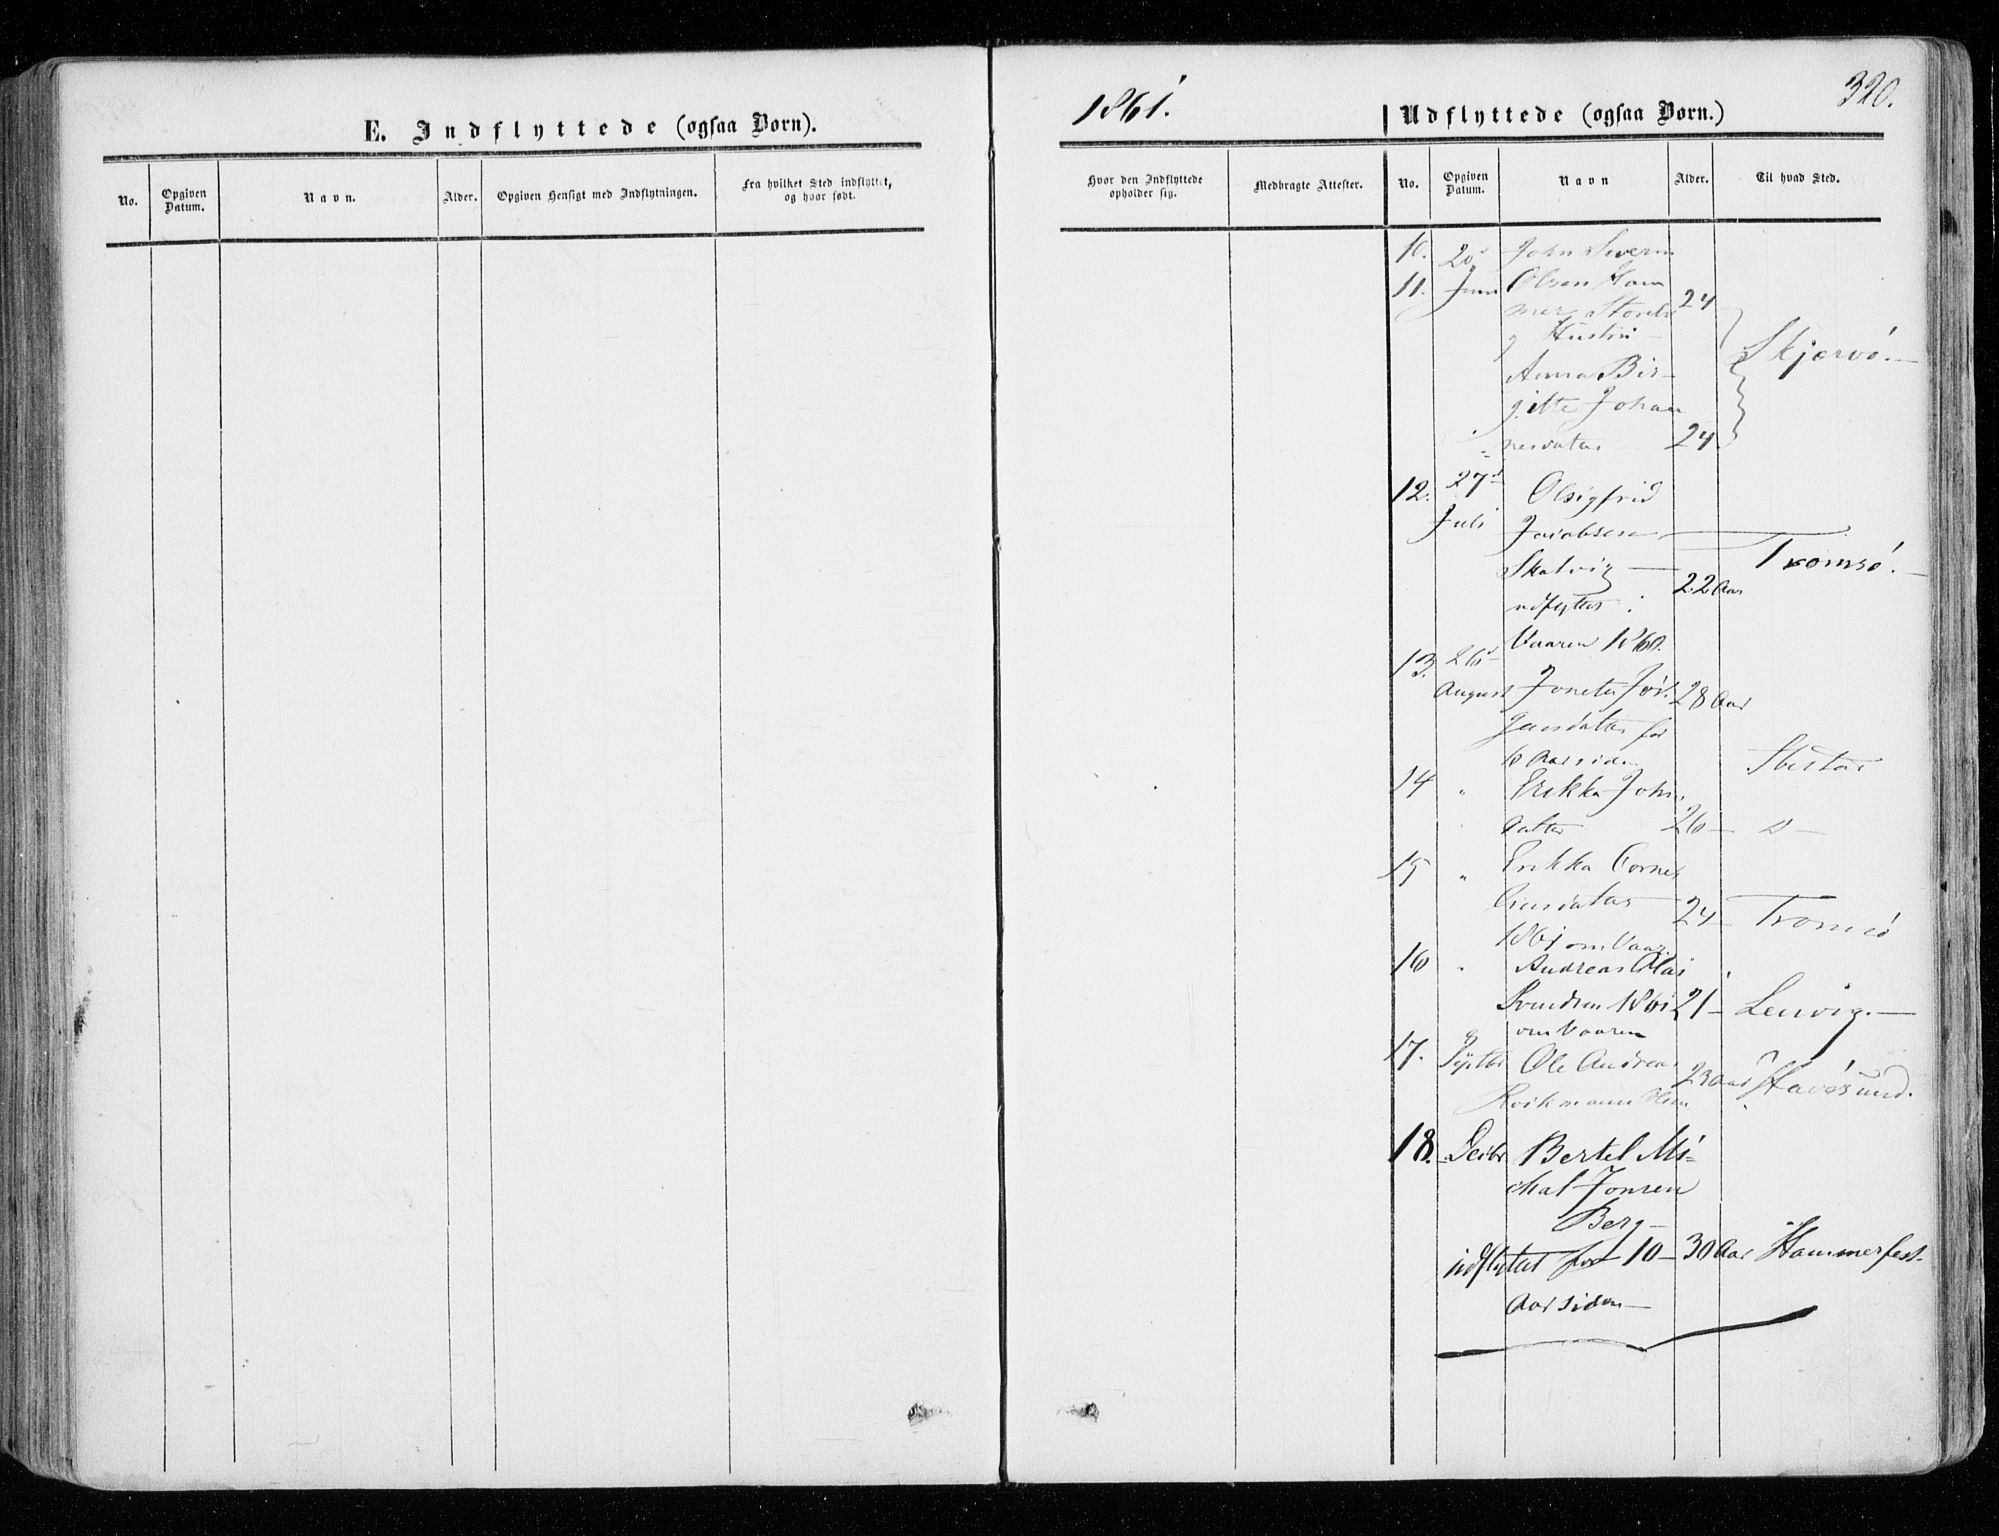 320.
1861.
E. Indflyttede (ogsaa Børn).
Udflyttede (ogsaa Børn.)
No.
Opgiven Datum.
Navn.
Alder.
Opgiven Hensigt med Indflytningen.
Fra hvilket Sted indflyttet, og hvor født.
Hvor den Indflyttede opholder sig.
Medbragte Attester.
No.
Opgiven Datum.
Navn
Alder.
Til hvad Sted.
10. 20 John
11. Juni Olsen Ham
mer 24
g Hustru
Skjervö.
Anna Bir-
gitte Johan
nesdatter 24
12. 27d Olsigfrid
Juli Jacobsen
Skatvig Tromsö.
udflyttet i 22 Aar
Vaaren 1860.
13. 26d
August Joneta Jör- 28 Aar
gensdatter for
6 Aar siden Ibestad
14 " Erikka Johns
datter 26 - D -
15 " Erikka Corne
liusdatter 24 - Tromsö
1861 om Vaar.
16 " Andreas Olai
Svendsen 1861 21 - Lenvig.
om Vaaren
17. Septbr Ole Andreas 23 Aar Havösund.
18. Decbr Bertel Mi-
chal Jonsen
Berg
udflyttet for 10 - 30 Aar Hammerfest.
Aar siden